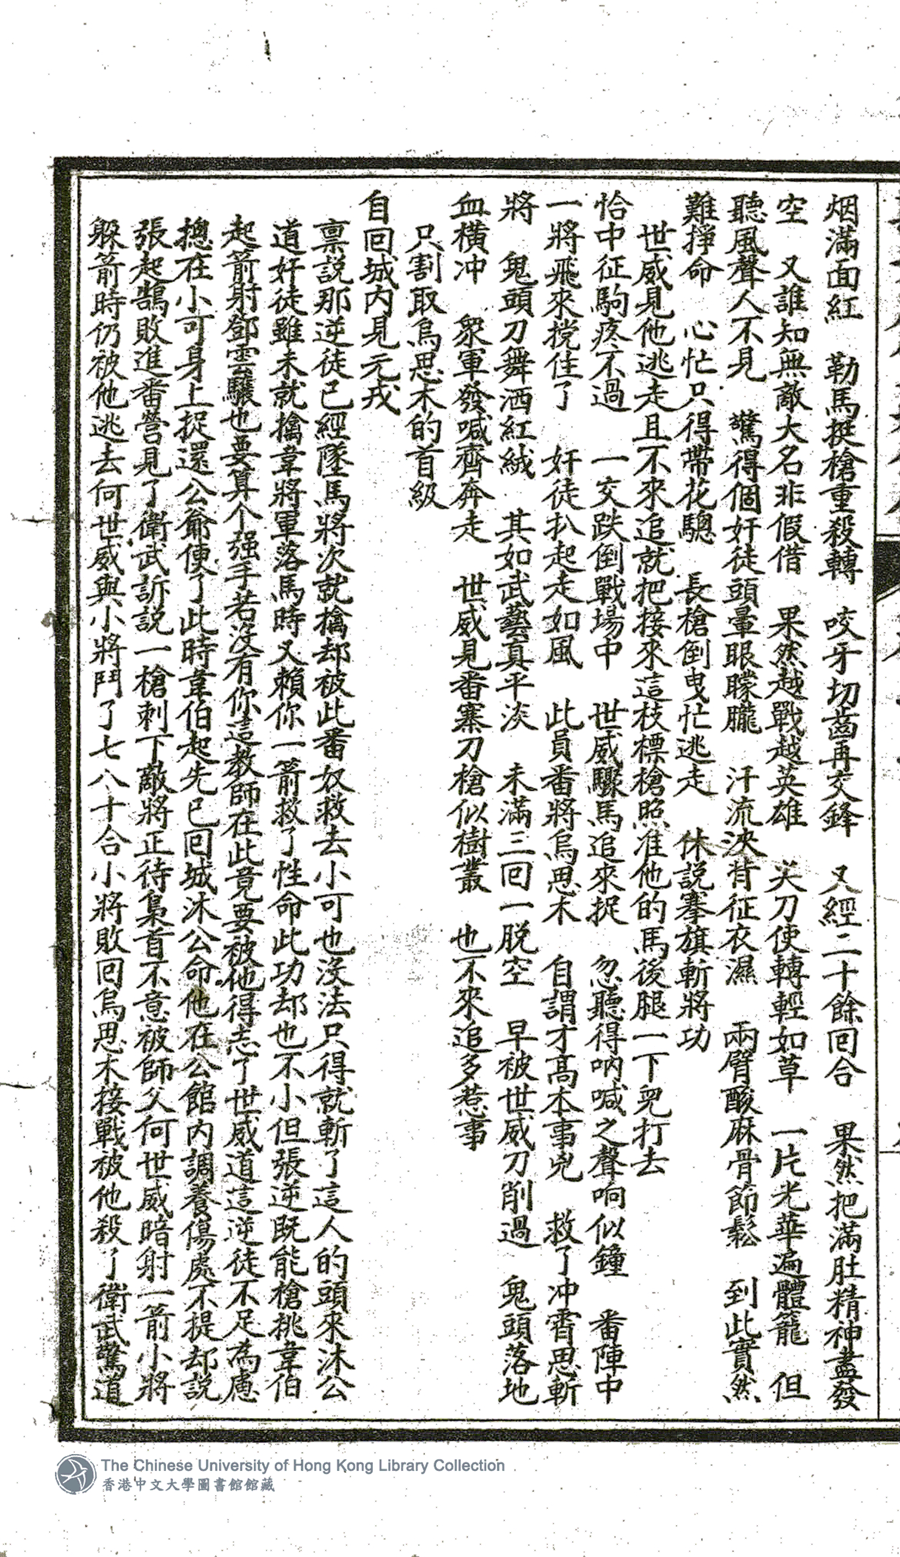 烟滿面紅　勒馬挺槍重殺轉　咬牙切齒再交鋒　又經二十餘回合　果然把滿肚精神盡發
空　又誰知無敵大名非假借　果然越戰越英雄　关刀使轉輕如草　一片光華遍體籠　但
聽風聲人不見　驚得個奸徒頭暈眼朦朧　汗流浹背征衣濕　兩臂酸麻骨節鬆　到此實然
難掙命　心忙只得帶花驄　長槍倒曳忙逃走　休說搴旗斬將功
世威見他逃走且不來追就把接來這枝標槍照准他的馬後腿一下兜打去
恰中征駒疼不過　一交跌倒戰場中　世威驟馬追來捉　忽聽得吶喊之聲响似鐘　番陣中
一將飛來挽住了　奸徒扒起走如風　此員番將烏思木　自謂才高本事兇　救了冲霄思斬
將　鬼頭刀舞洒紅絨　其如武藝真平淡　未滿三回一脱空　早被世威刀削過　鬼頭落地
血橫冲　眾軍發喊齊奔走　世威見番寨刀槍似樹叢　也不來追多惹事
只割取烏思木的首級
自回城內見元戎
稟說那逆徒已經墜馬將次就擒却被此番奴救去小可也沒法只得就斬了這人的頭來沐公
道奸徒雖未就擒韋將軍落馬時又賴你一箭救了性命此功却也不小但張逆既能槍挑韋伯
起箭射鄧雲驤也要算个强手若沒有你這教師在此竟要被他得志了世威道這逆徒不足為慮
摠在小可身上捉還公爺便了此時韋伯起先已回城沐公命他在公館內調養傷處不提却說
張起鵠敗進番營見了衛武訴說一槍刺下敵將正待梟首不意被師父何世威暗射一箭小將
躱箭時仍被他逃去何世威與小將鬥了七八十合小將敗回烏思木接戰被他殺了衛武驚道
The Chinese University of Hong Kong Library Collection
香港中文大學圖書館館藏